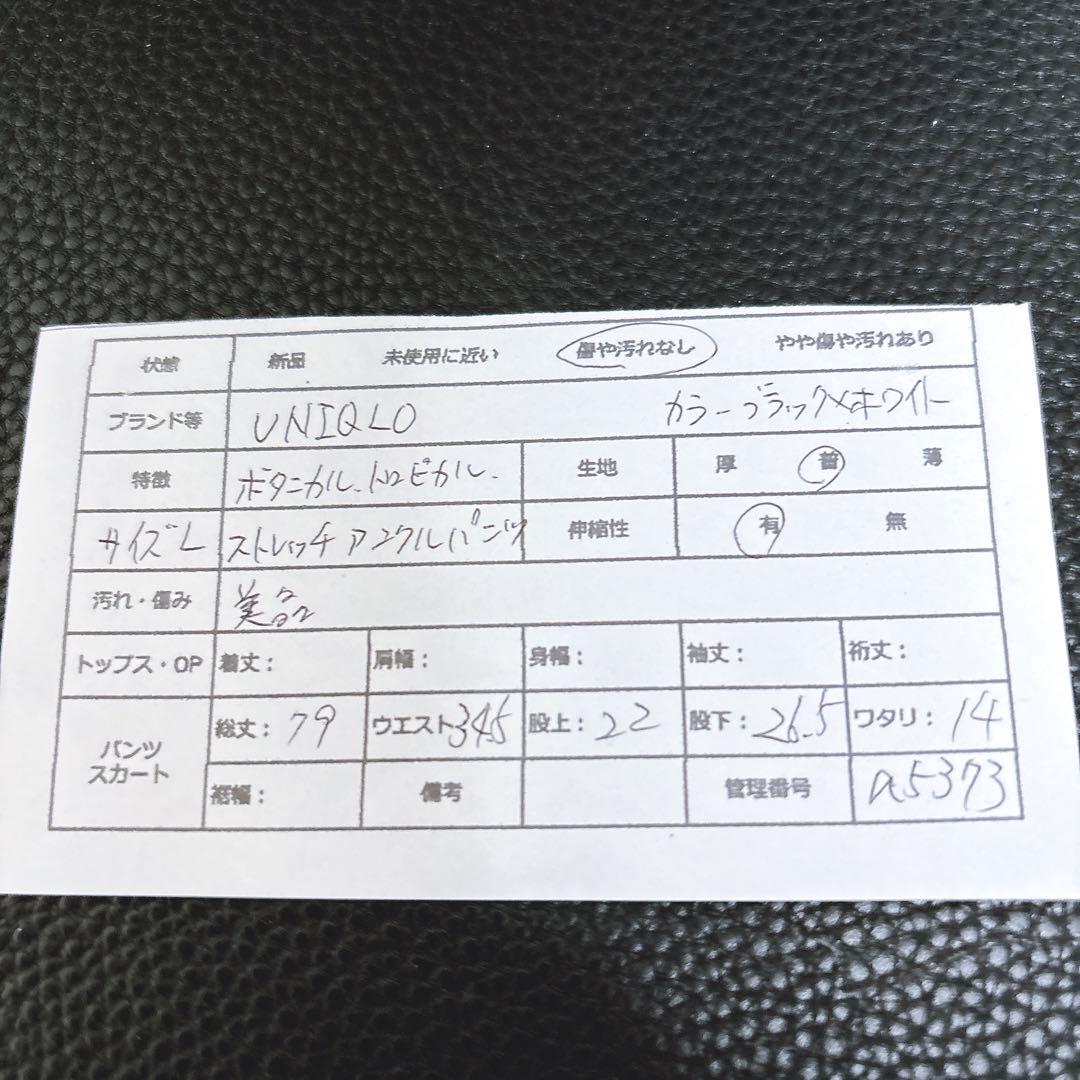 状態 新品 未使用に近い 傷や汚れなし やや傷や汚れあり
ブランド等 UNIQLO カラーブラック×ホワイト
特徴 ボタニカル、トロピカル、 生地 厚 普 薄
サイズL ストレッチアンクルパンツ 伸縮性 有 無
汚れ・傷み 美品
トップス・OP 着丈： 肩幅： 身幅： 袖丈： 裄丈：
パンツ スカート 総丈：79 ウエスト345 股上：22 股下：26.5 ワタリ：14
裾幅： 備考 管理番号 a5373